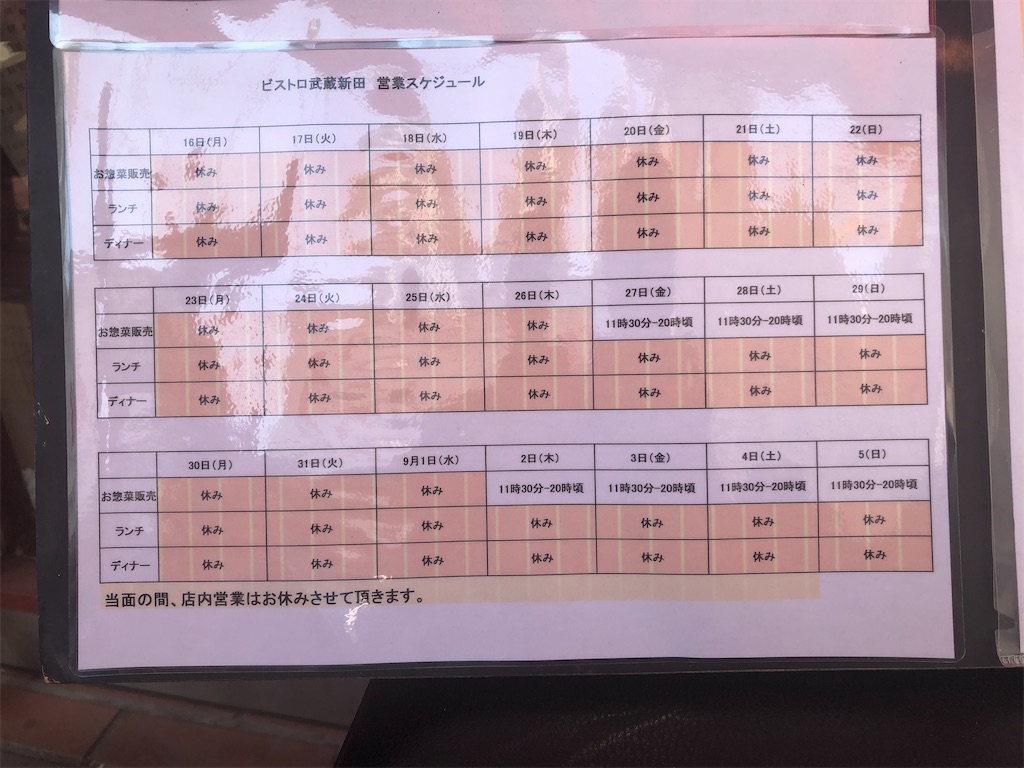 ビストロ武蔵新田 営業スケジュール
16日(月) 17日(火) 18日(水) 19日(木) 20日(金) 21日(土) 22(日)
お惣菜販売 休み 休み 休み 休み 休み 休み 休み
ランチ 休み 休み 休み 休み 休み 休み 休み
ディナー 休み 休み 休み 休み 休み 休み 休み
23日(月) 24日(火) 25日(水) 26日(木) 27日(金) 28日(土) 29(日)
お惣菜販売 休み 休み 休み 休み 11時30分-20時頃 11時30分-20時頃 11時30分-20時頃
ランチ 休み 休み 休み 休み 休み 休み 休み
ディナー 休み 休み 休み 休み 休み 休み 休み
30日(月) 31日(火) 9月1日(水) 2日(木) 3日(金) 4日(土) 5(日)
お惣菜販売 休み 休み 休み 11時30分-20時頃 11時30分-20時頃 11時30分-20時頃 11時30分-20時頃
ランチ 休み 休み 休み 休み 休み 休み 休み
ディナー 休み 休み 休み 休み 休み 休み 休み
当面の間、店内営業はお休みさせて頂きます。